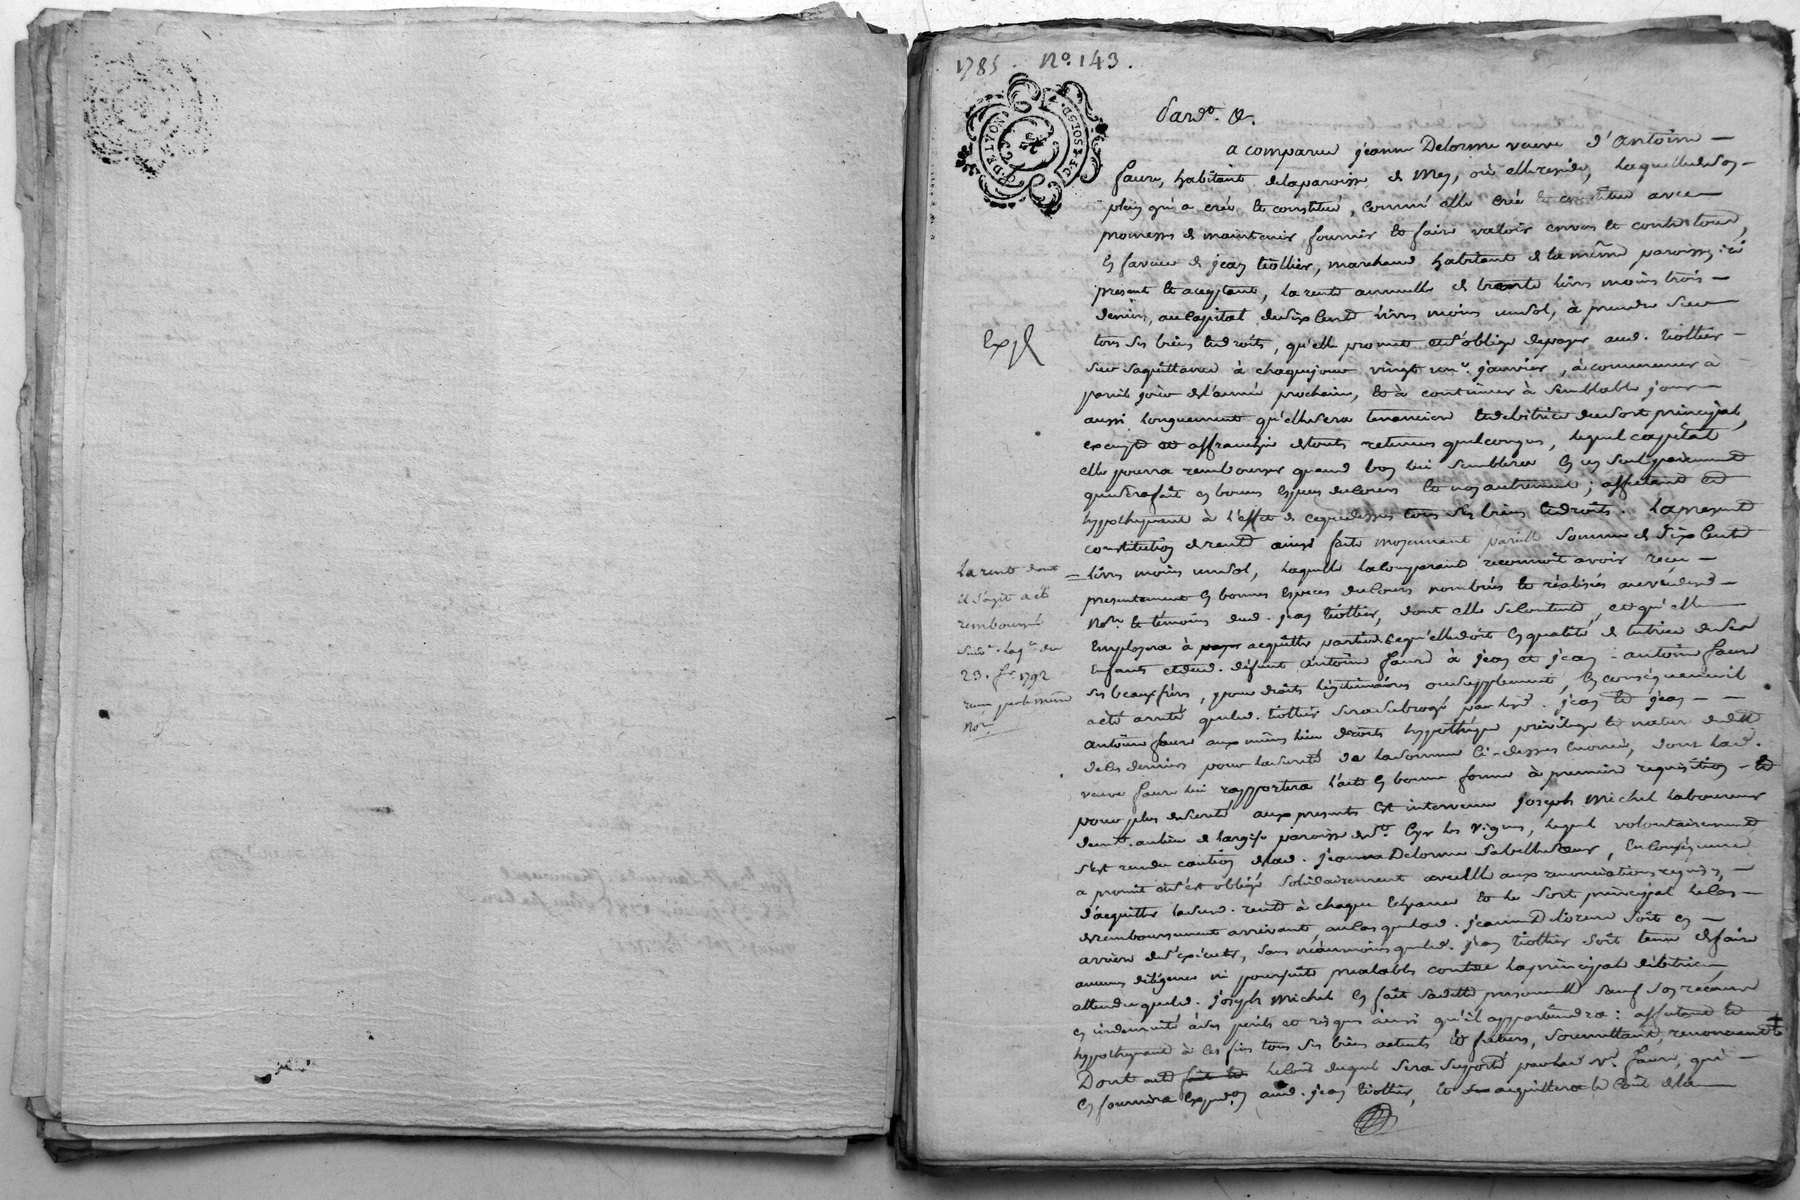 1785. No. 143.
G. DE LYON
DE 2 SOLS 4 D.
Pardt. &.
a comparu jeanne Delorme veuve d'antoine
faure, habitante de la paroisse de Mey, où elle reside, laquelle de son
plein gré a créé et constitué, comme elle crée et constitue avec
promesse de maintenir fournir et faire valoir envers et contre tous,
en faveur de jean Tiollier, marchand habitant de la même paroisse ici
present et aceptant, la rente annuelle de trente livres moins trois
deniers, au capital de six cent livres moins un sol, à prendre sur
tous ses biens et droits, qu'elle promet et s'oblige de payer aud. tiollier
Expé
sur sa quittance à chaque jour vingt un janvier, à commencer à
pareil jour de l'année prochaine, et à continuer à semblable jour
aussi longuement qu'elle sera tenancière et debitrice du sort principal,
exempte et affranchie de toutes retenues quelconques, lequel capital
elle pourra rembourser quand bon lui semblera en un seul payement
qui sera fait en bonnes espèces de cours et non autrement; affectant et
hypothequant à l'effet de ce que dessus tous ses biens et droits. La presente
constitution de rente ainsi faite moyennant pareille somme de six cent
livres moins un sol, laquelle la comparante reconnoit avoir reçu
presentement en bonnes especes de cours nombrées et réalisées au vu desd.
Nore. et témoins dud. jean tiollier, dont elle se contente, et qu'elle
Employera à acquitter partie de ce qu'elle doit en qualité de tutrice de ses
Enfants et dud. défunt antoine faure à jean et jean-antoine faure
ses beaux frères, pour droits légitimaires ou supplement, en conséquence il
a été arrêté que led. tiollier sera subrogé par lesd. jean et jean
antoine faure aux mêmes lieu droits hypothèque privilege et nature de dette
de ces derniers pour la sureté de la somme ci-dessus énoncée, dont lad.
veuve faure lui rapportera l'acte en bonne forme à premiere requisition et
pour plus de sureté aux presentes Est intervenu joseph Michel laboureur
demt. au lieu de largise paroisse de st. Cyr les Vignes, lequel volontairement
s'est rendu caution de lad. jeanne Delorme sa belle soeur, En conséquence
a promis et s'est obligé solidairement avec elle aux renonciations requises,
d'acquitter lad. rente à chaque echeance et le sort principal le cas
de remboursement arrivant, au cas que lad. jeanne Delorme soit en
arriere de s'executer, sans néanmoins que led. jean tiollier soit tenu de faire
aucunes diligences ni poursuites prealables contre la principale débitrice,
attendu que led. joseph Michel en fait sa dette personnelle sauf son recours
en indemnité à ses perils et risques ainsi qu'il appartiendra: affectant et
hypothequant à ces fins tous ses biens actuels et futurs, soumettant, renonceant &
Dont acte le coût duquel sera suporté par lad. ve. faure, qui
en fournira expedon. aud. jean tiollier, et acquittera le coût de la
la rente dont
il s'agit a été
remboursée
suivt. la qce. du
23. fer. 1792
reçue par le même
Nore